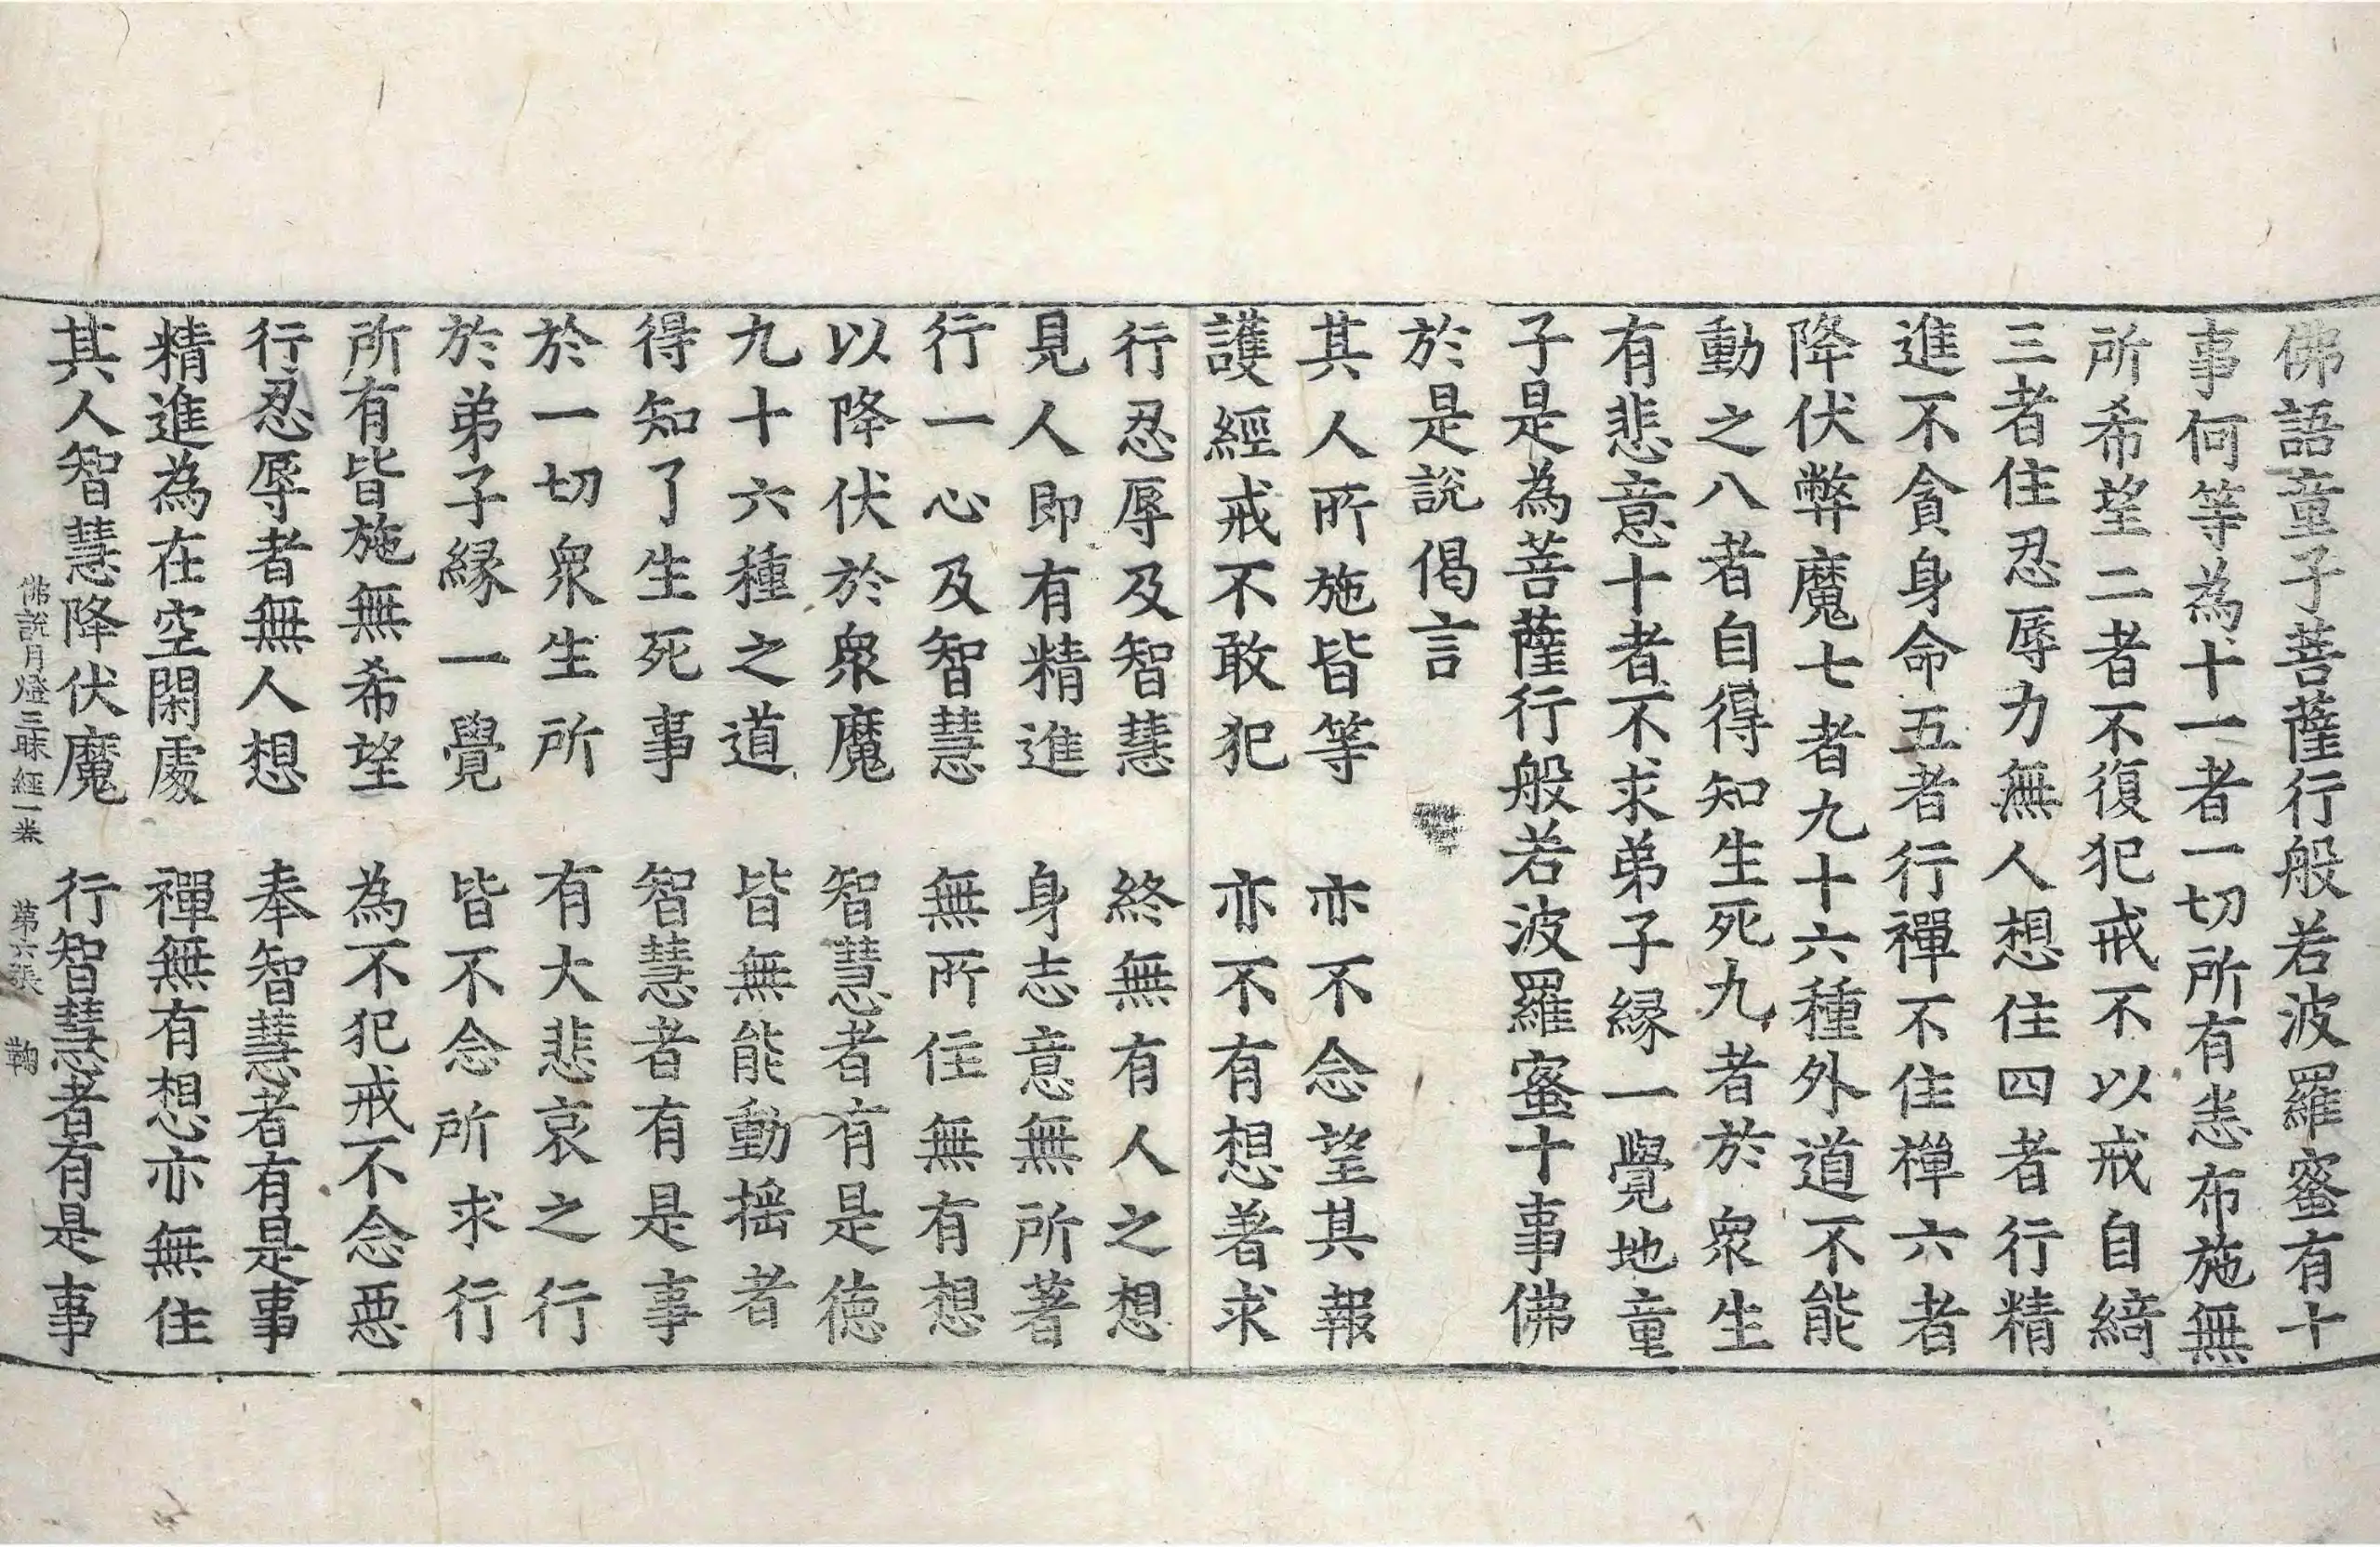 佛語童子菩薩行般若波羅蜜有十
事何等為十一者一切所有悉布施無
所希望二者不復犯戒不以戒自綺
三者住忍辱力無人想住四者行精
進不貪身命五者行禪不住禪六者
降伏弊魔七者九十六種外道不能
動之八者自得知生死九者於衆生
有悲意十者不求弟子縁一覺地童
子是為菩薩行般若波羅蜜十事佛
於是說偈言
其人所施皆等　亦不念望其報
護經戒不敢犯　亦不有想著求
行忍辱及智慧　終無有人之想
見人即有精進　身志意無所著
行一心及智慧　無所住無有想
以降伏於衆魔　智慧者有是德
九十六種之道　皆無能動揺者
得知了生死事　智慧者有是事
於一切衆生所　有大悲哀之行
於弟子縁一覺　皆不念所求行
所有皆施無希望　為不犯戒不念惡
行忍辱者無人想　奉智慧者有是事
精進為在空閑處　禪無有想亦無住
其人智慧降伏魔　行智慧者有是事
佛說月燈三昧經一卷　第六張　鞠